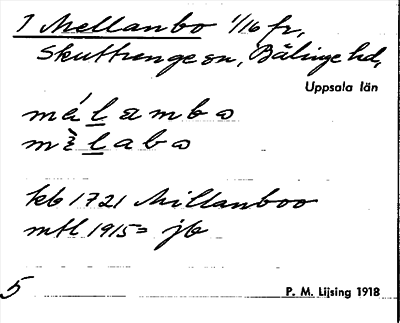 1 Mellanbo 1/16 fr,
Skuttunge sn, Bälinge hd,
Uppsala län
kb 1721 Millanboo
mtl 1915 = jb
5
P. M. Lijsing 1918